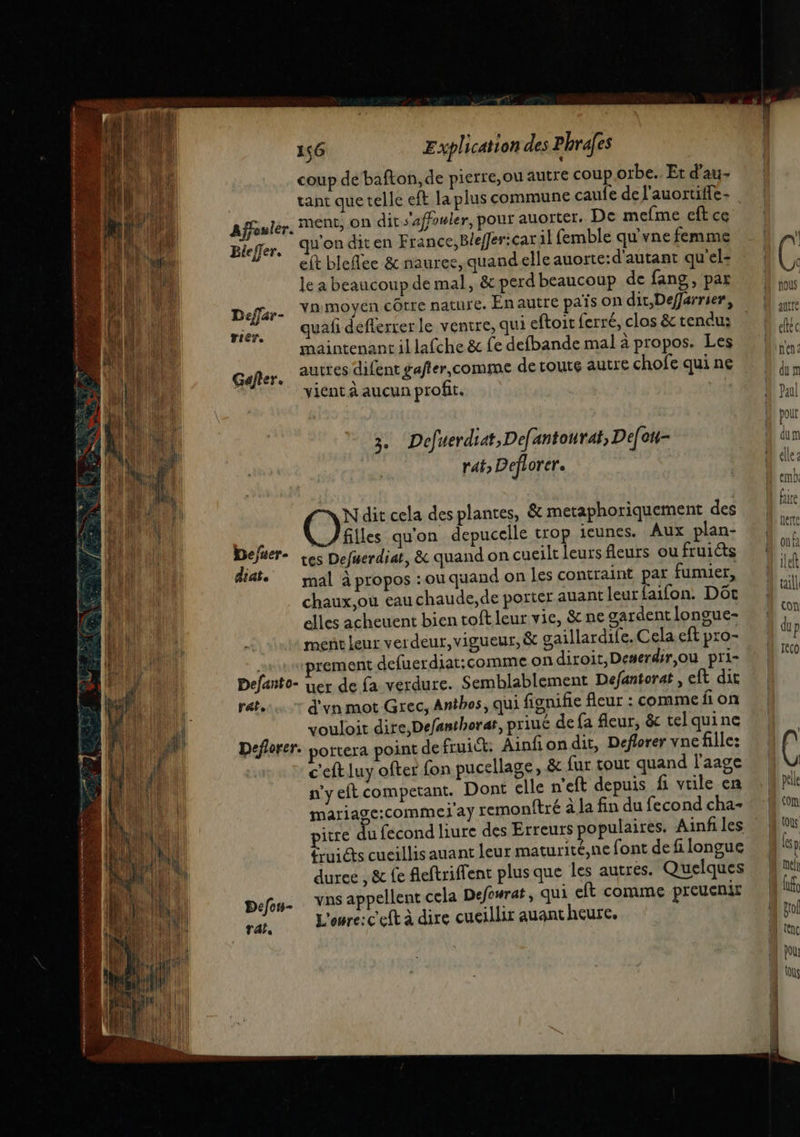 156 Explication des Phrases
coup de baſton, de pierre, ou autre coup orbe. Et d'au-
tant que telle eſt la plus commune cauſe de l'auortiſſe-
Affouler. ment, on dit s'affouler, pour auorter. De meſme eſt ce
Bleſſer. qu'on dit en France, Bleſſer: car il ſemble qu'vne femme
eſt bleſſee & nauree, quand elle auorte: d'autant qu'el-
le a beaucoup de mal, & perd beaucoup de ſang, par
Deſſar- vn moyen cōtre nature. En autre païs on dit, Deſſarrier,
rier. quaſi deſſerrer le ventre, qui eſtoit ſerré, clos & tendu;
maintenant il laſche & ſe desbande mal à propos. Les
Gaſter. autres diſent gaſter, comme de toute autre choſe qui ne
vient à aucun profit.
3. Deſuerdiat, Deſantourat, Deſou-
rat, Deflorer.
ON dit cela des plantes, & metaphoriquement des
filles qu'on depucelle trop ieunes. Aux plan-
Deſuer- tes Deſuerdiat, & quand on cueilt leurs fleurs ou fruicts
diat. mal à propos: ou quand on les contraint par fumier,
chaux, ou eau chaude, de porter auant leur ſaiſon. Dōt
elles acheuent bien toſt leur vie, & ne gardent longue-
ment leur verdeur, vigueur, & gaillardiſe. Cela eſt pro-
prement deſuerdiat: comme on diroit, Deuerdir, ou pri-
Deſanto- uer de ſa verdure. Semblablement Deſantorat, eſt dit
rat. d'vn mot Grec, Anthos, qui ſignifie fleur: comme ſi on
vouloit dire, Deſanthorat, priué de ſa fleur, & tel qui ne
Deflorer. portera point de fruict. Ainſi on dit, Deflorer vne fille:
c'eſt luy oſter ſon pucellage, & ſur tout quand l'aage
n'y eſt competant. Dont elle n'eſt depuis ſi vtile en
mariage: comme i'ay remonſtré à la fin du ſecond cha-
pitre du ſecond liure des Erreurs populaires. Ainſi les
fruicts cueillis auant leur maturité, ne ſont de ſi longue
duree, & ſe fleſtriſſent plus que les autres. Quelques
Deſou- vns appellent cela Deſourat, qui eſt comme preuenir
rat. L'oure: c'eſt à dire cueillir auant heure.